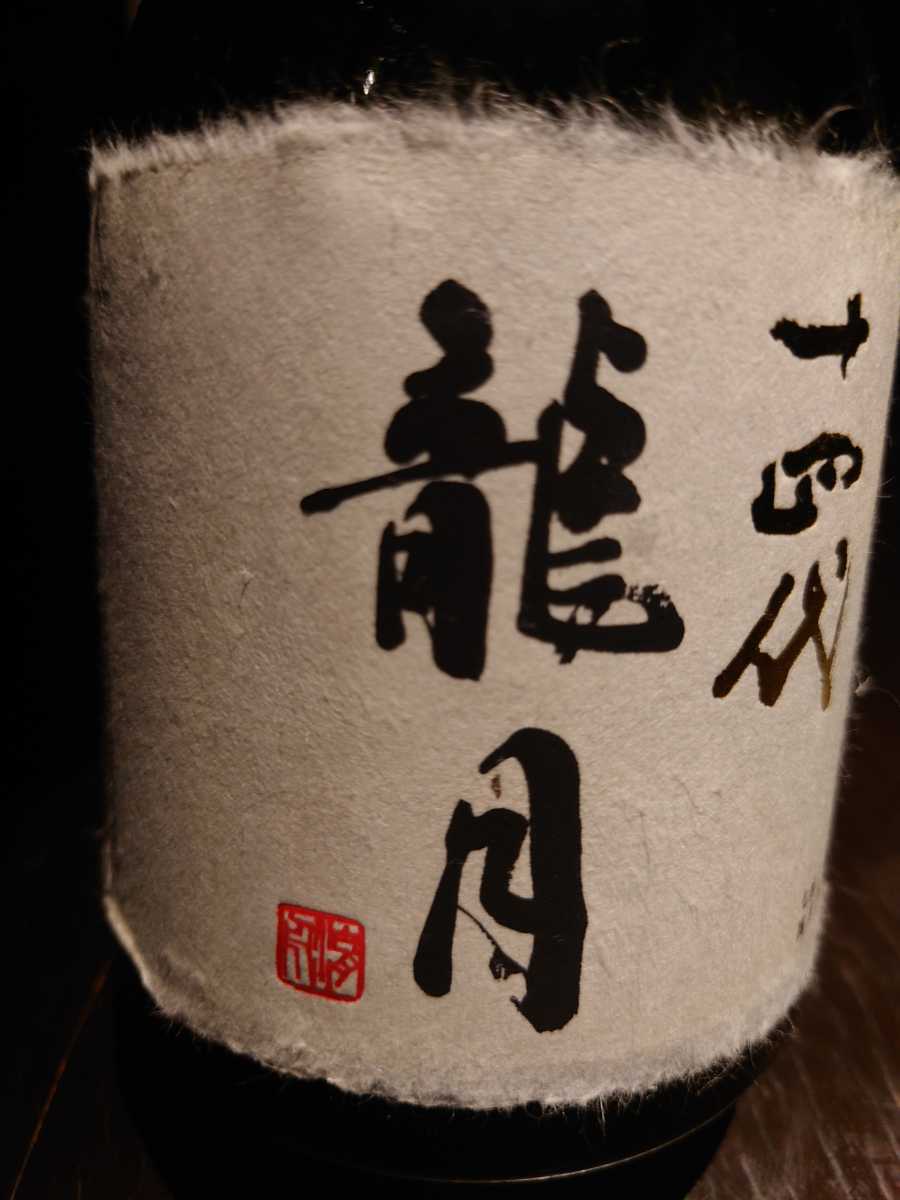 十四代
龍月